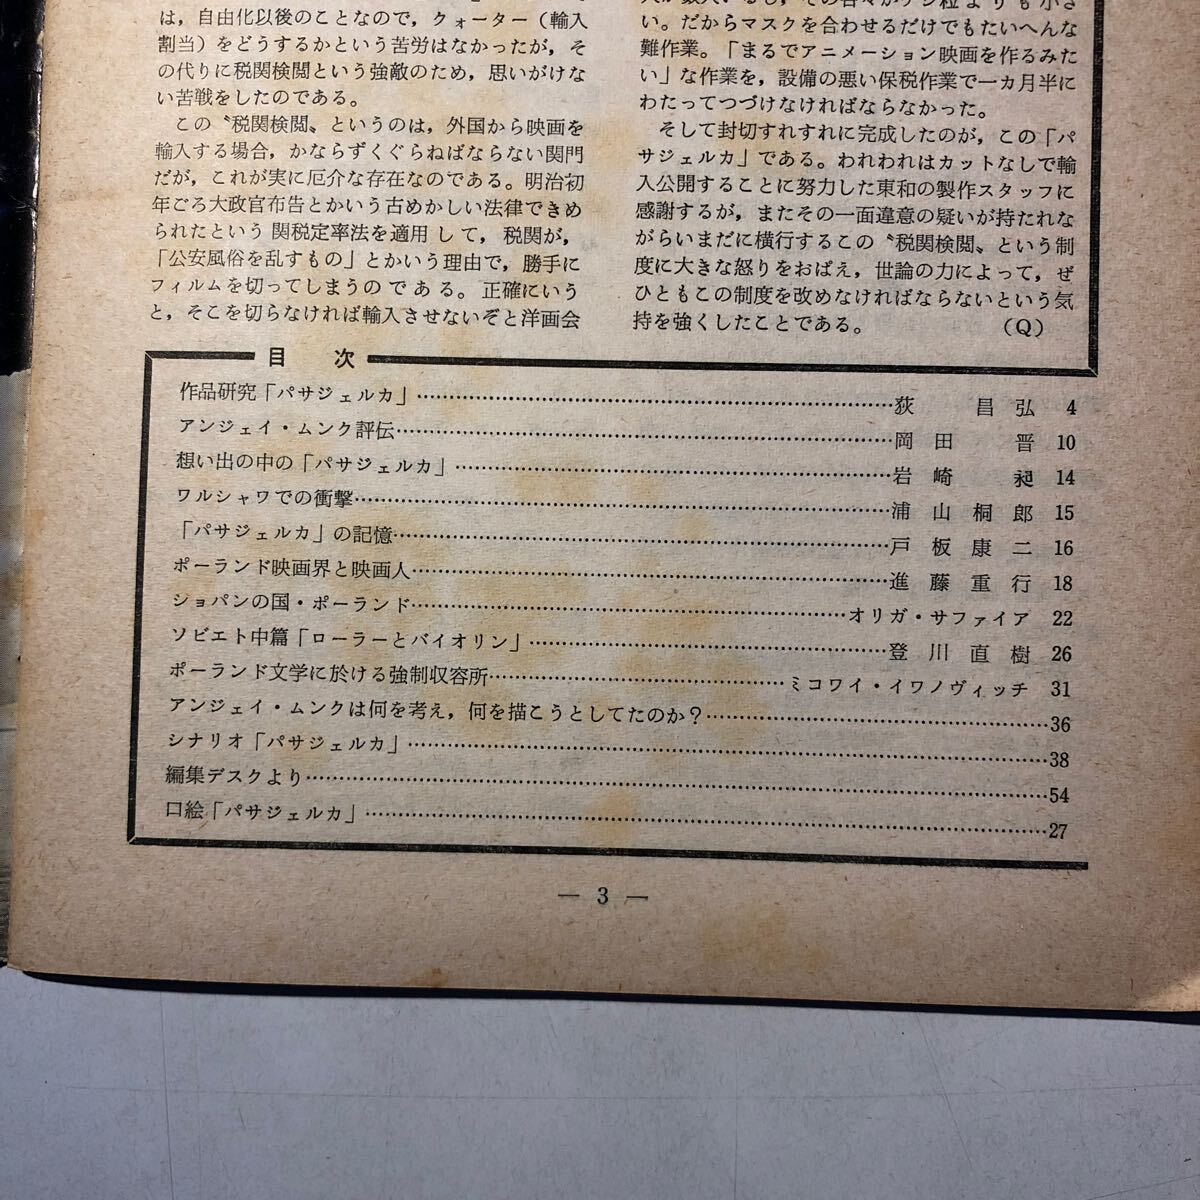 は，自由化以後のことなので，クォーター（輸入
割当）をどうするかという苦労はなかったが，そ
の代りに税関検閲という強敵のため，思いがけな
い苦戦をしたのである。
この〝税関検閲〟というのは，外国から映画を
輸入する場合，かならずくぐらねばならない関門
だが，これが実に厄介な存在なのである。明治初
年ごろ大政官布告とかいう古めかしい法律できめ
られたという関税定率法を適用して，税関が，
「公安風俗を乱すもの」とかいう理由で，勝手に
フィルムを切ってしまうのである。正確にいう
と，そこを切らなければ輸入させないぞと洋画会
い。だからマスクを合わせるだけでもたいへんな
難作業。「まるでアニメーション映画を作るみた
い」な作業を，設備の悪い保税作業で一カ月半に
わたってつづけなければならなかった。
そして封切すれすれに完成したのが，この「パ
サジェルカ」である。われわれはカットなしで輸
入公開することに努力した東和の製作スタッフに
感謝するが，またその一面違意の疑いが持たれな
がらいまだに横行するこの〝税関検閲〟という制
度に大きな怒りをおぼえ，世論の力によって，ぜ
ひともこの制度を改めなければならないという気
持を強くしたことである。（Q）
目　次
作品研究「パサジェルカ」……荻　昌弘 4
アンジェイ・ムンク評伝……岡田　晋 10
想い出の中の「パサジェルカ」……岩崎　昶 14
ワルシャワでの衝撃……浦山桐郎 15
「パサジェルカ」の記憶……戸板康二 16
ポーランド映画界と映画人……進藤重行 18
ショパンの国・ポーランド……オリガ・サファイア 22
ソビエト中篇「ローラーとバイオリン」……登川直樹 26
ポーランド文学に於ける強制収容所……ミコワイ・イワノヴィッチ 31
アンジェイ・ムンクは何を考え，何を描こうとしてたのか？……36
シナリオ「パサジェルカ」……38
編集デスクより……54
口絵「パサジェルカ」……27
— 3 —